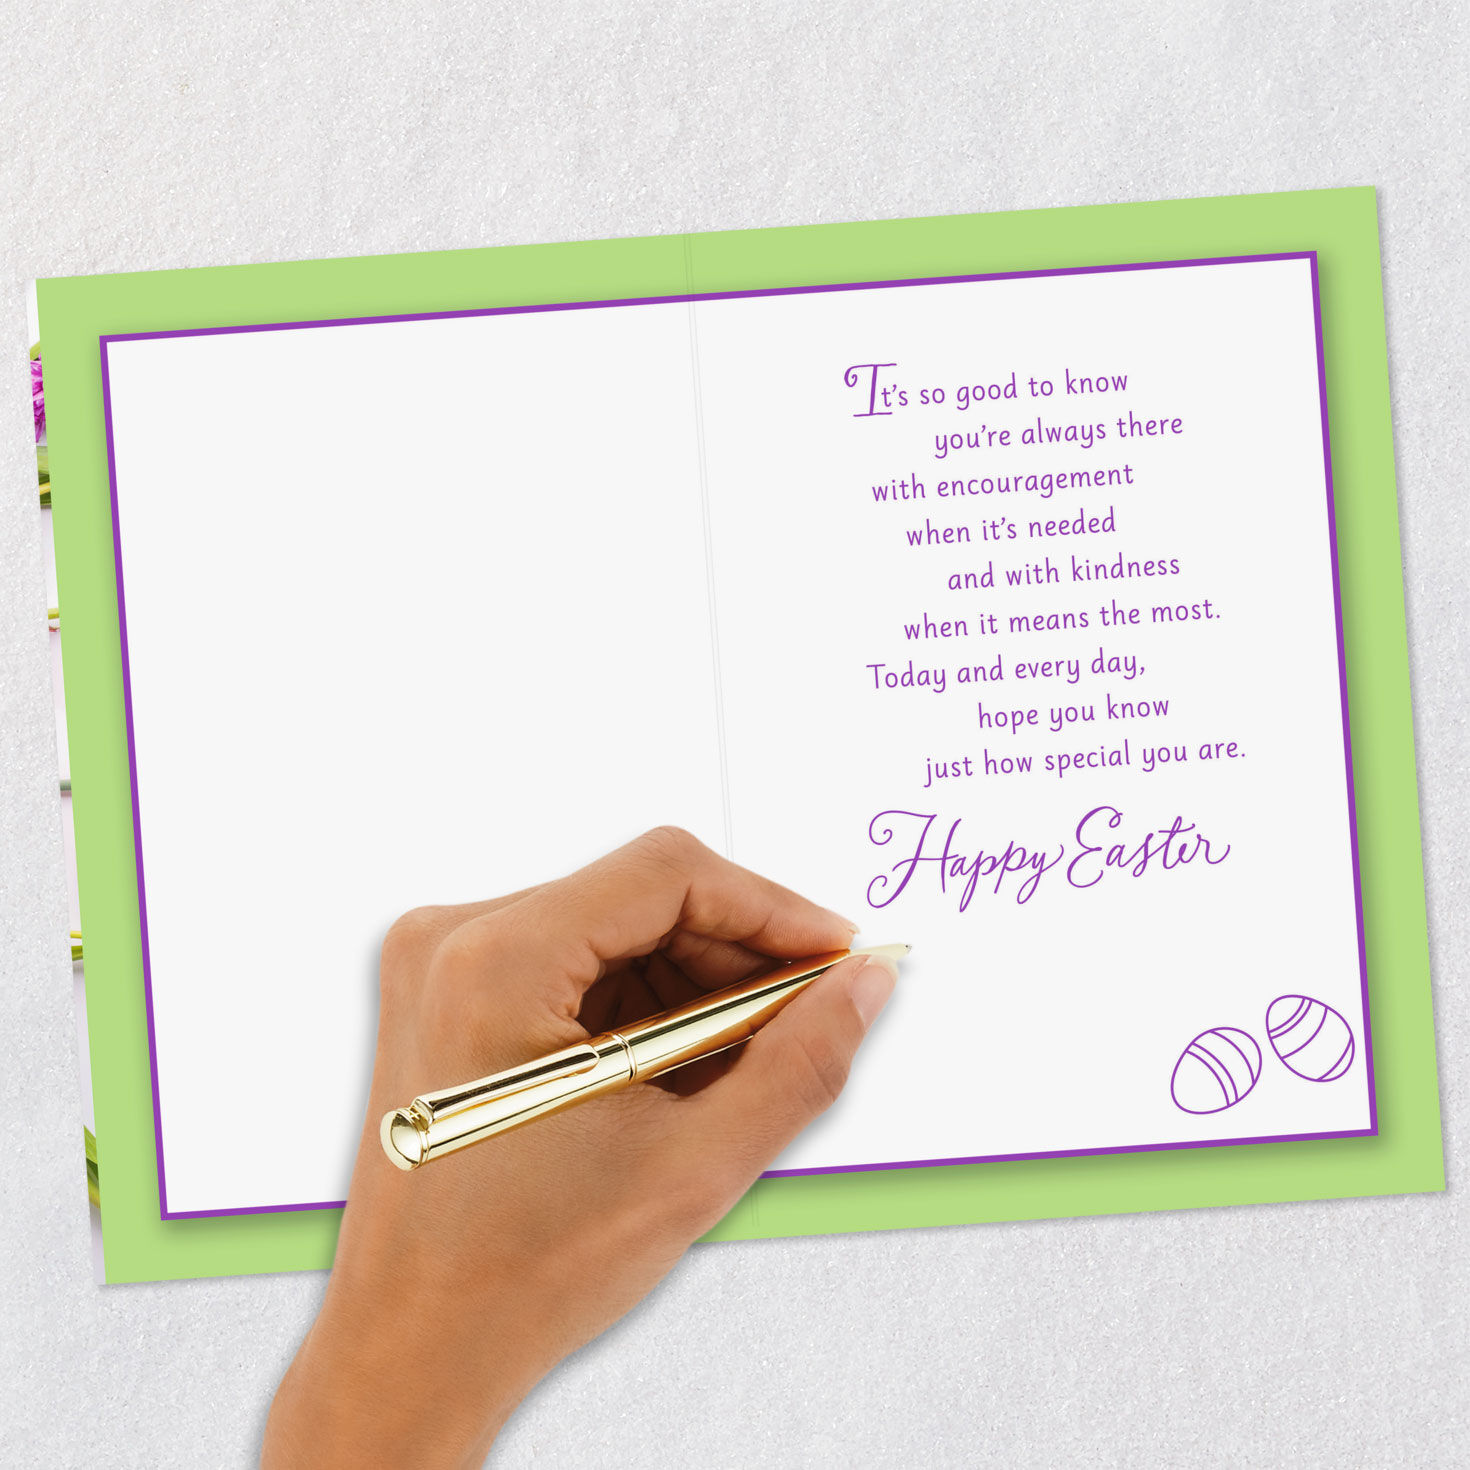 It's so good to know
you're always there
with encouragement
when it's needed
and with kindness
when it means the most.
Today and every day,
hope you know
just how special you are.
Happy Easter